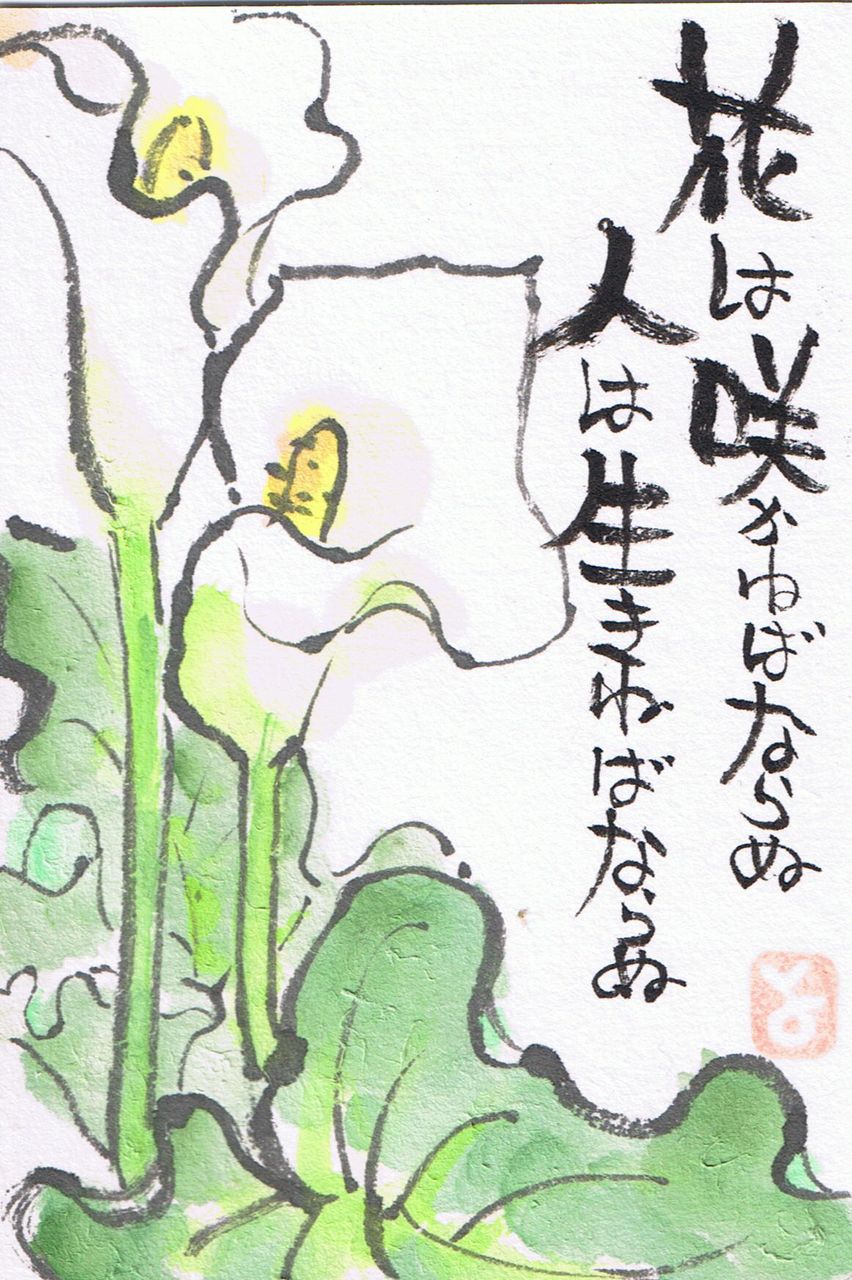 花は咲かねばならぬ
人は生きねばならぬ